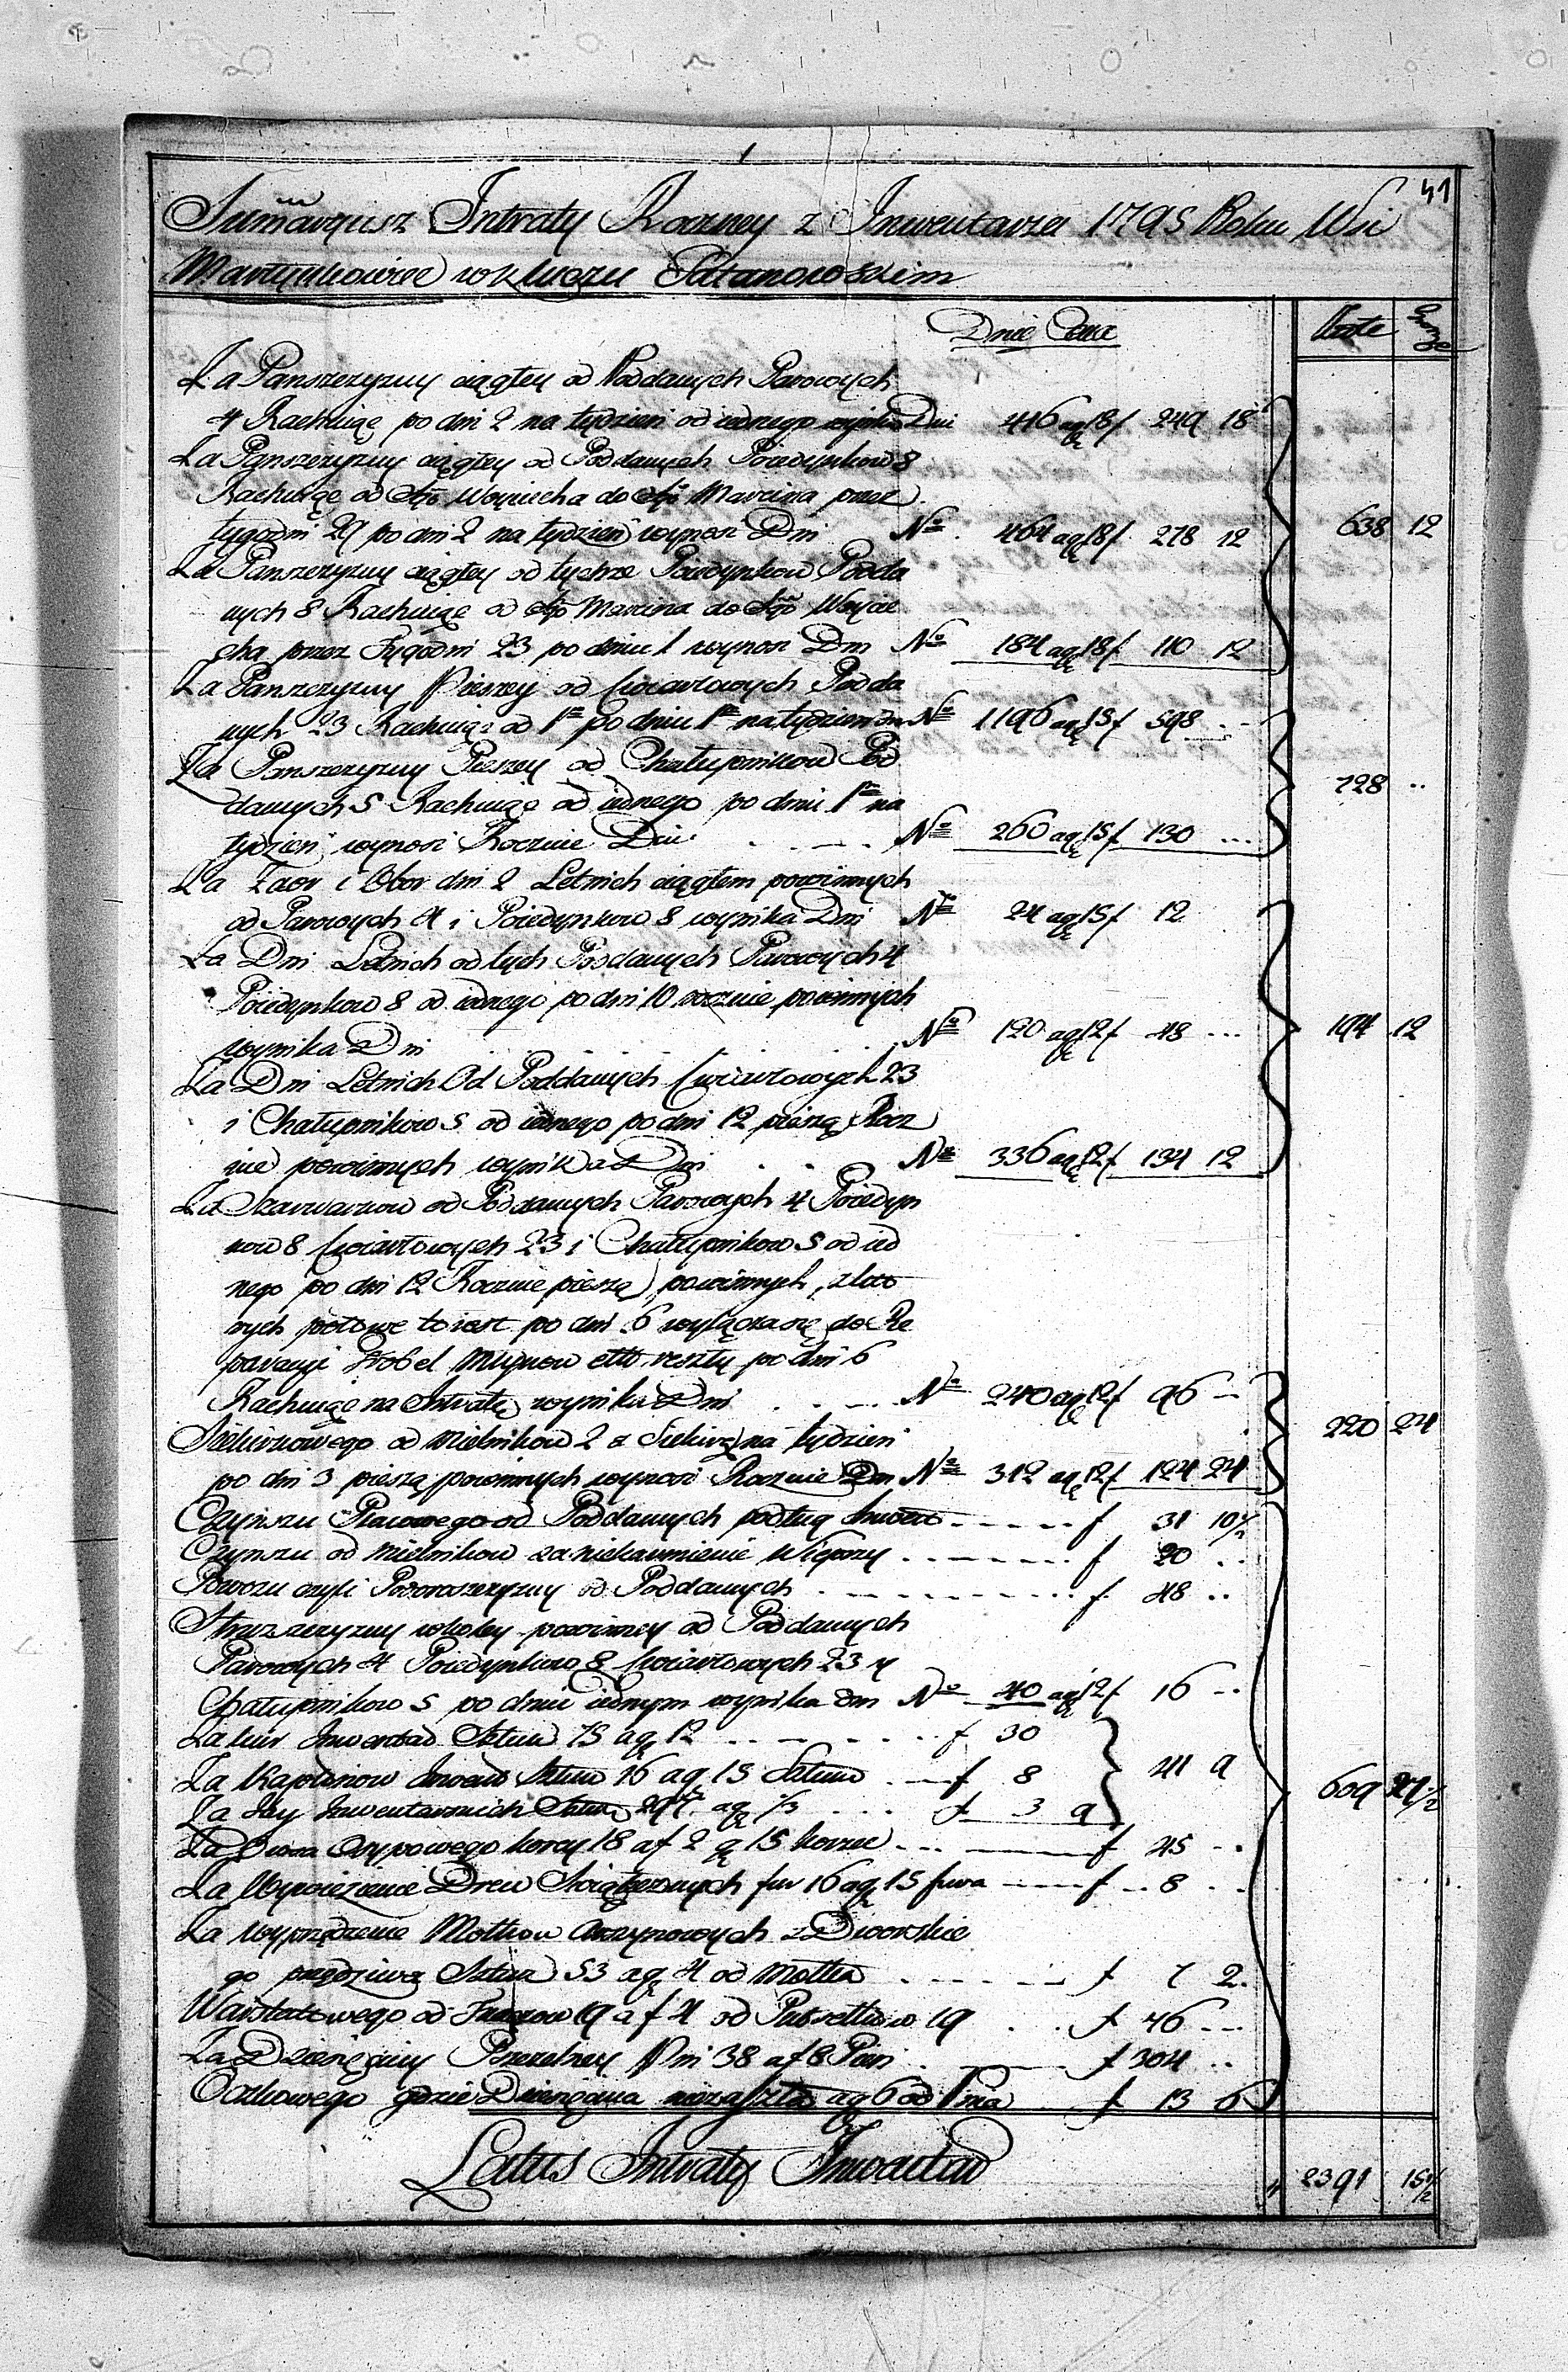 1
41
Sum̃aryusz Intraty Roczney z Inwentarza 1795 Roku Wsi
Martynkowiec w kluczu Satanowskim
Dnie Cena Złote Grosze
Za Panszczyzny ciągłey od Poddanych Parowych
4 Rachuiąc po dni 2 na tydzien od iednego wynika Dni 416 a gr 18 f 249 18
Za Panszczyzny ciągłey od Poddanych Poiedynkow 8
Rachuiąc od Sgo Woyciecha do Sgo Marcina przez
tygodni 29 po dni 2 na tydzien wynosi Dni No 464 a gr 18 f 278 12 638 12
Za Panszczyzny ciągłey od tychze Poiedynkow Podda
nych 8 Rachuiąc od Sgo Marcina do Sgo Woycie
cha przez Tygodni 23 po dniu 1 wynosi Dni No 184 a gr 18 f 110 12
Za Panszczyzny Pieszey od Cwiartowych Podda
nych 23 Rachuiąc od 1o po dniu 1m na tydzien dni No 1196 a gr 15 f 598 ...
Za Panszczyzny Pieszey od Chałupnikow Pod
danych 5 Rachuiąc od iednego po dniu 1m na 728 ..
tydzien wynosi Rocznie Dni No 260 a gr 15 f 130 ...
Za Zaor i Obor dni 2 Letnich ciągłem powinnych
od Parowych 4 i Poiedynkow 8 wynika Dni No 24 a gr 15 f 12
Za Dni Letnich od tych Poddanych Parowych 4
Poiedynkow 8 od iednego po dni 10 rocznie powinnych
wynika Dni No 120 a gr 12 f 48 ... 194 12
Za Dni Letnich Od Poddanych Cwiartowych 23
i Chałupnikow 5 od iednego po dni 12 pieszą Rocz
nie powinnych wynika Dni No 336 a gr 12 f 134 12
Za Szarwarkow od Poddanych Parowych 4 Poiedyn
kow 8 Cwiartowych 23 i Chałupnikow 5 od ied
nego po dni 12 Rocznie pieszą powinnych, z kto
rych połowe to iest po dni 6 wyłącza się do Re
paracyi Grobel Młynow etto reszty po dni 6
Rachuiąc na Intratę wynika Dni No 240 a gr 12 f 96 --
Siekirkowego od Mielnikow 2 z Siekirą na tydzien 220 24
po dni 3 pieszą powinnych wynosi Rocznie Dni No 312 a gr 12 f 124 24
Czynszu od Poddanych podług Inwent f 31 10 1/2
Czynszu od Mielnikow za niekarmienie Wieprzy f 20 ..
Powozu czyli Powozczyzny od Poddanych f 48 ..
Struzczyzny koleyey powinney od Poddanych
Parowych 4 Poiedynkow 8 Cwiartowych 23 y
Chałupnikow 5 po dniu iednym wynika dni No 40 a gr 12 f 16 --
Za kur Inwentad Sztuk 75 a gr 12 f 30
Za Kapłonow Inwent Sztuk 16 a gr 15 Sztuka f 8 41 9 609 24 1/2
Za Jay Inwentarskich Sztuk 297 a gr 1/3 f 3 9
Za Owsa Osypowego korcy 18 a f 2 gr 15 korzec f 45 ..
Za Wywiezienie Drew Swiątecznych fur 16 a gr 15 fura f 8 ..
Za wyprzędzenie Motkow Oczynowych z Dworskie
go przędziwa Sztuk 53 a gr 4 od Motka f 7 2
Warstatowego od Tkaczow 19 a f 4 od 19 f 46 --
Za Dziesięciny Pszczelney Pni 38 a f 8 Pień f 304 ..
Oczkowego gdzie Dziesięcina nie zaszła a gr 6 od Pnia f 13 6
Latus Intraty Inwentar f 2391 15 1/2